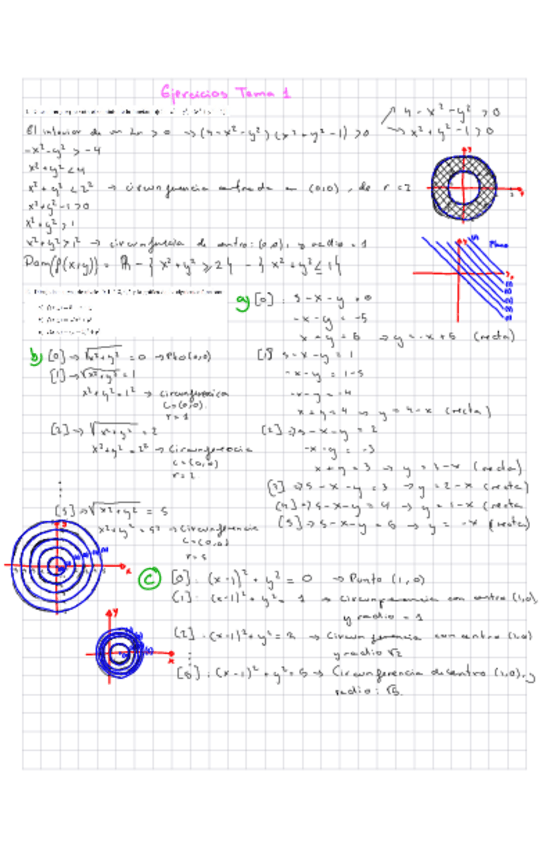 Ejercicios Tema 1
El interior de un ln > 0 → (4-x²-y²)(x²+y²-1) > 0
↗ 4-x²-y² > 0
↘ x²+y²-1 > 0
-x²-y² > -4
x²+y² < 4
x²+y² < 2² → circunferencia centrada en (0,0), de r = 2
x²+y²-1 > 0
x²+y² > 1
x²+y² > 1² → circunferencia de centro: (0,0), y radio = 1
Dom(f(x,y)) = ℝ - { x²+y² ≥ 2 } - { x²+y² ≤ 1 }
Plano
a) [0] : 5-x-y = 0
-x-y = -5
x+y = 5 ⇒ y = -x+5 (recta)
[1] 5-x-y = 1
-x-y = 1-5
-x-y = -4
x+y = 4 ⇒ y = 4-x (recta)
[2] ⇒ 5-x-y = 2
-x-y = -3
x+y = 3 → y = 3-x (recta)
[3] ⇒ 5-x-y = 3 → y = 2-x (recta)
[4] ⇒ 5-x-y = 4 → y = 1-x (recta
[5] ⇒ 5-x-y = 5 → y = -x (recta)
b) [0] → √x²+y² = 0 → Pto(0,0)
[1] → √x²+y² = 1
x²+y² = 1² → circunferencia
C=(0,0)
r=1
[2] → √x²+y² = 2
x²+y² = 2² → Circunferencia
C=(0,0)
r=2
⋮
[5] → √x²+y² = 5
x²+y² = 5² → Circunferencia
C=(0,0)
r=5
c) [0] : (x-1)² + y² = 0 → Punto (1,0)
[1] : (x-1)² + y² = 1 → Circunferencia con centro (1,0)
y radio = 1
[2] : (x-1)² + y² = 2 → Circunferencia con centro (1,0)
y radio √2
⋮
[5] : (x-1)² + y² = 5 → Circunferencia de centro (1,0), y
radio: √5.